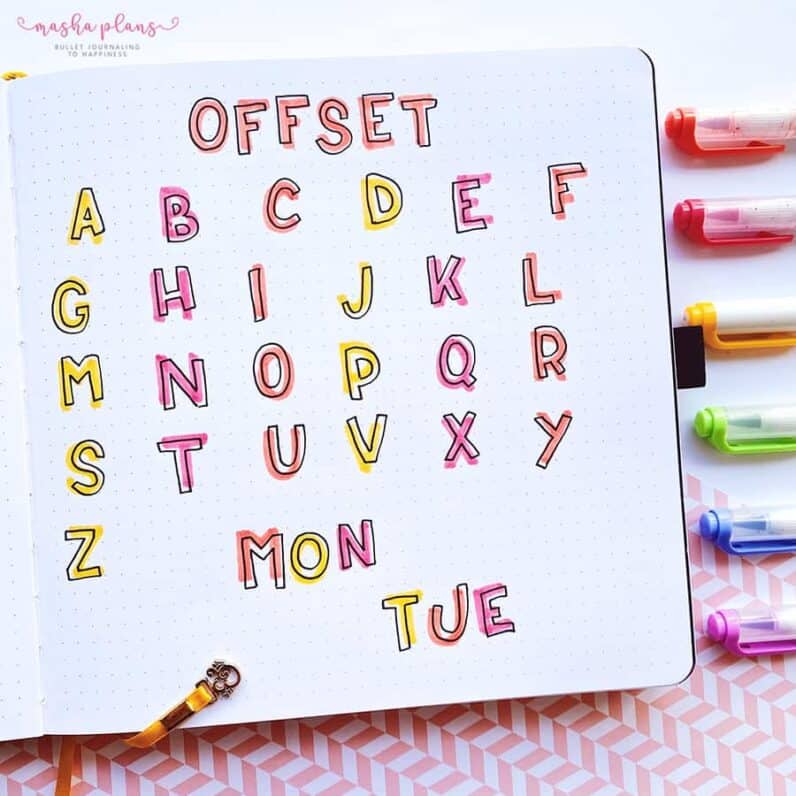 masha plans
BULLET JOURNALING
TO HAPPINESS
OFFSET
A B C D E F
G H I J K L
M N O P Q R
S T U V X Y
Z MON
TUE